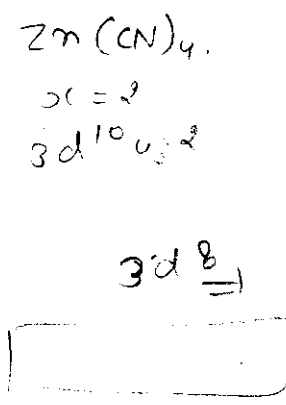 Zn(CN)4.
x = 2
3d10 4s2
3d8